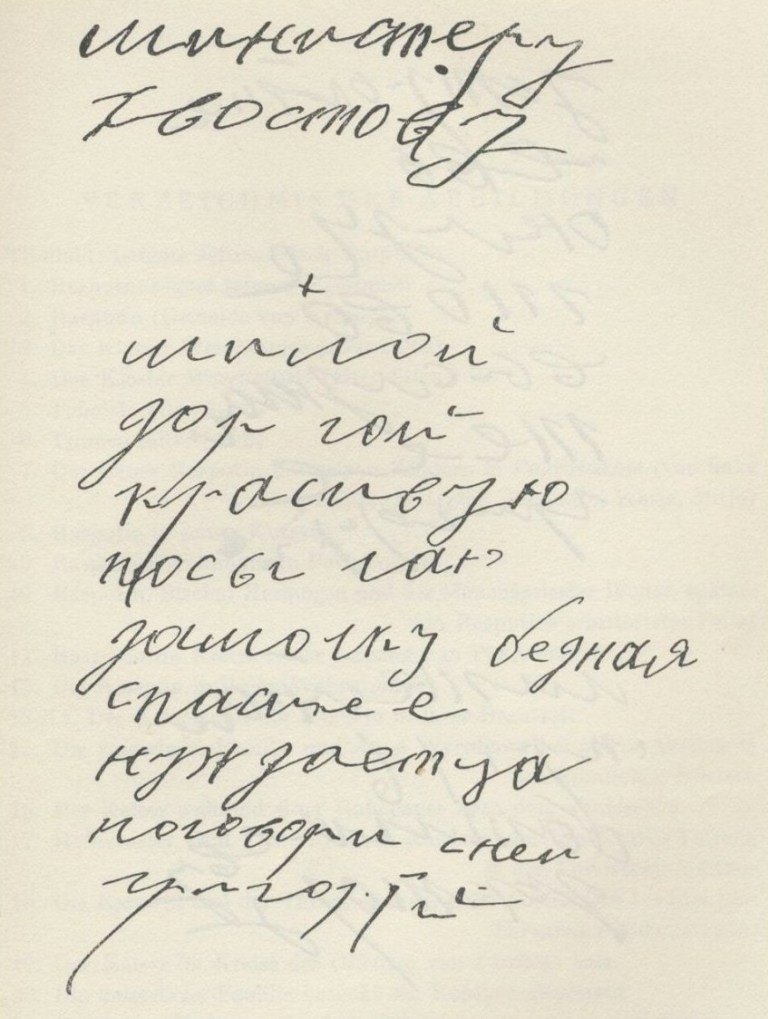 министеру
Хвостову
+
милой
дор гой
красивую
посы лаю
дамочку бедная
спасите е
нуждаетца
поговори сней
григорий